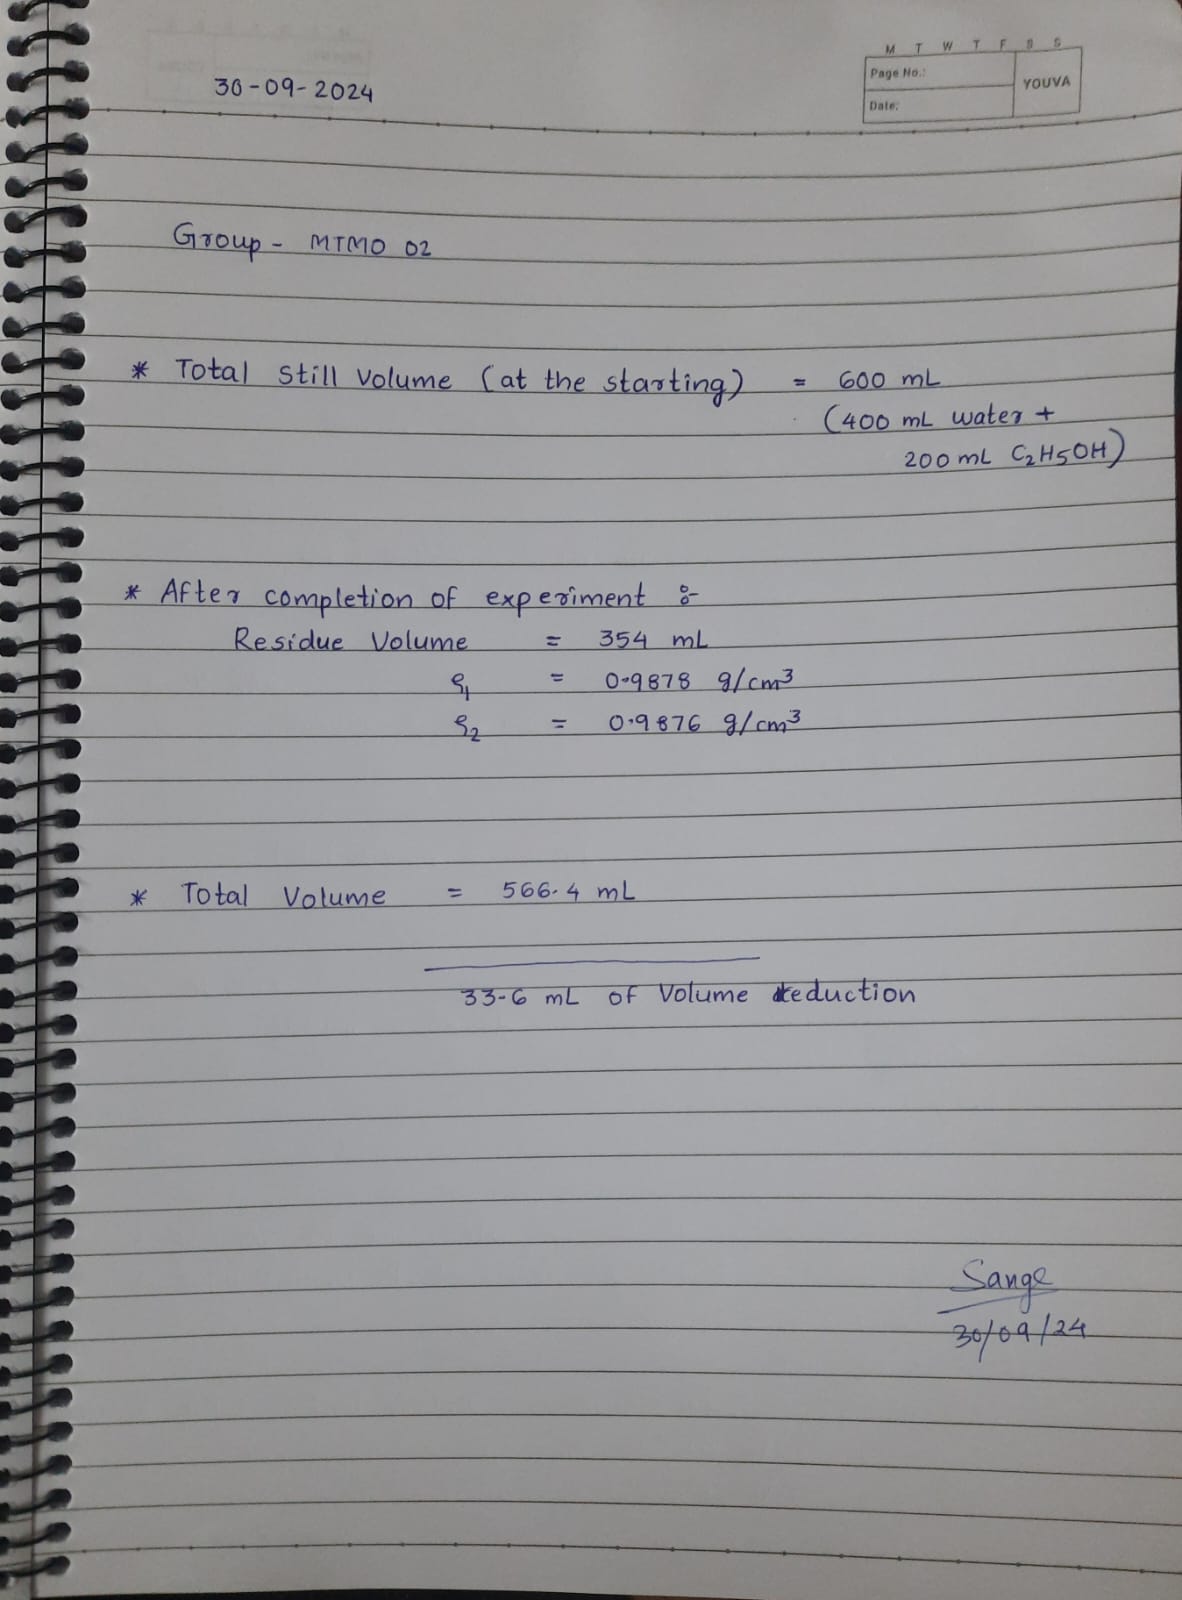 M T W T F S S
Page No.:
YOUVA
Date:
30-09-2024
Group - MTMO 02
* Total Still Volume (at the starting) = 600 mL
(400 mL water +
200 mL C₂H₅OH)
* After completion of experiment :-
Residue Volume = 354 mL
ρ₁ = 0.9878 g/cm³
ρ₂ = 0.9876 g/cm³
* Total Volume = 566.4 mL
33.6 mL of Volume reduction
Sange
30/09/24